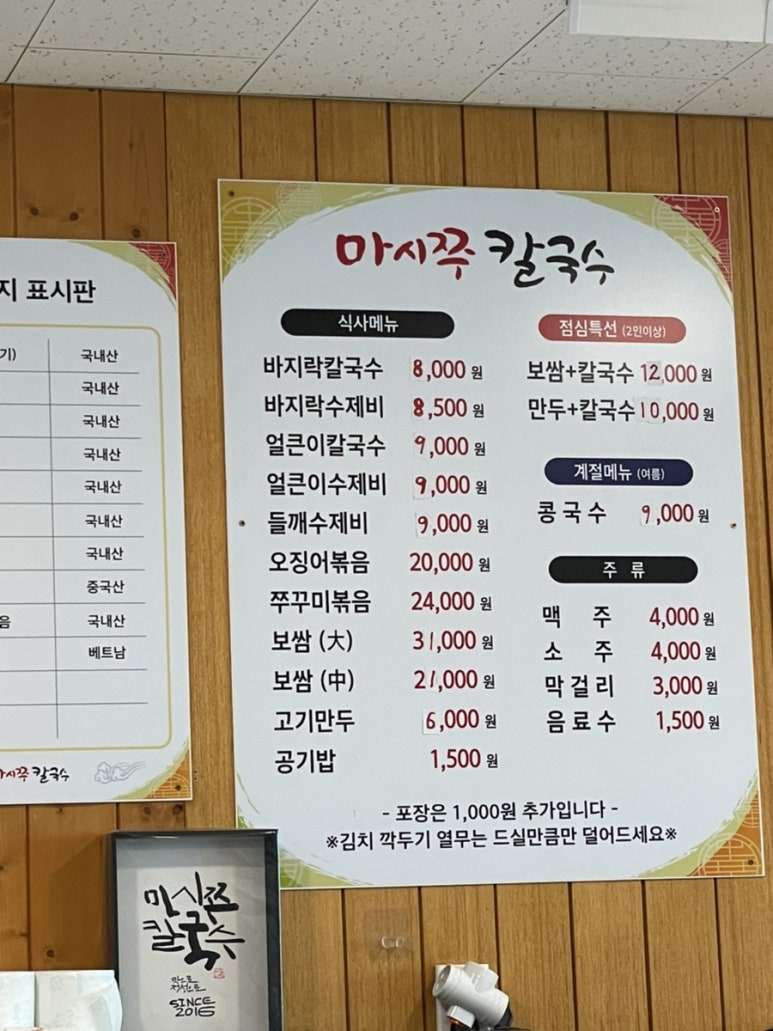 지 표시판
기)
국내산
국내산
국내산
국내산
국내산
국내산
국내산
중국산
음 국내산
베트남
마시쭈 칼국수
마시쭈 칼국수
식사메뉴
바지락칼국수 8,000 원
바지락수제비 8,500 원
얼큰이칼국수 9,000 원
얼큰이수제비 9,000 원
들깨수제비 9,000 원
오징어볶음 20,000 원
쭈꾸미볶음 24,000 원
보쌈 (大) 31,000 원
보쌈 (中) 21,000 원
고기만두 6,000 원
공기밥 1,500 원
점심특선 (2인이상)
보쌈+칼국수 12,000 원
만두+칼국수 10,000 원
계절메뉴 (여름)
콩국수 9,000 원
주 류
맥 주 4,000 원
소 주 4,000 원
막걸리 3,000 원
음료수 1,500 원
- 포장은 1,000원 추가입니다 -
※김치 깍두기 열무는 드실만큼만 덜어드세요※
마시쭌
칼국수
SINCE
2016